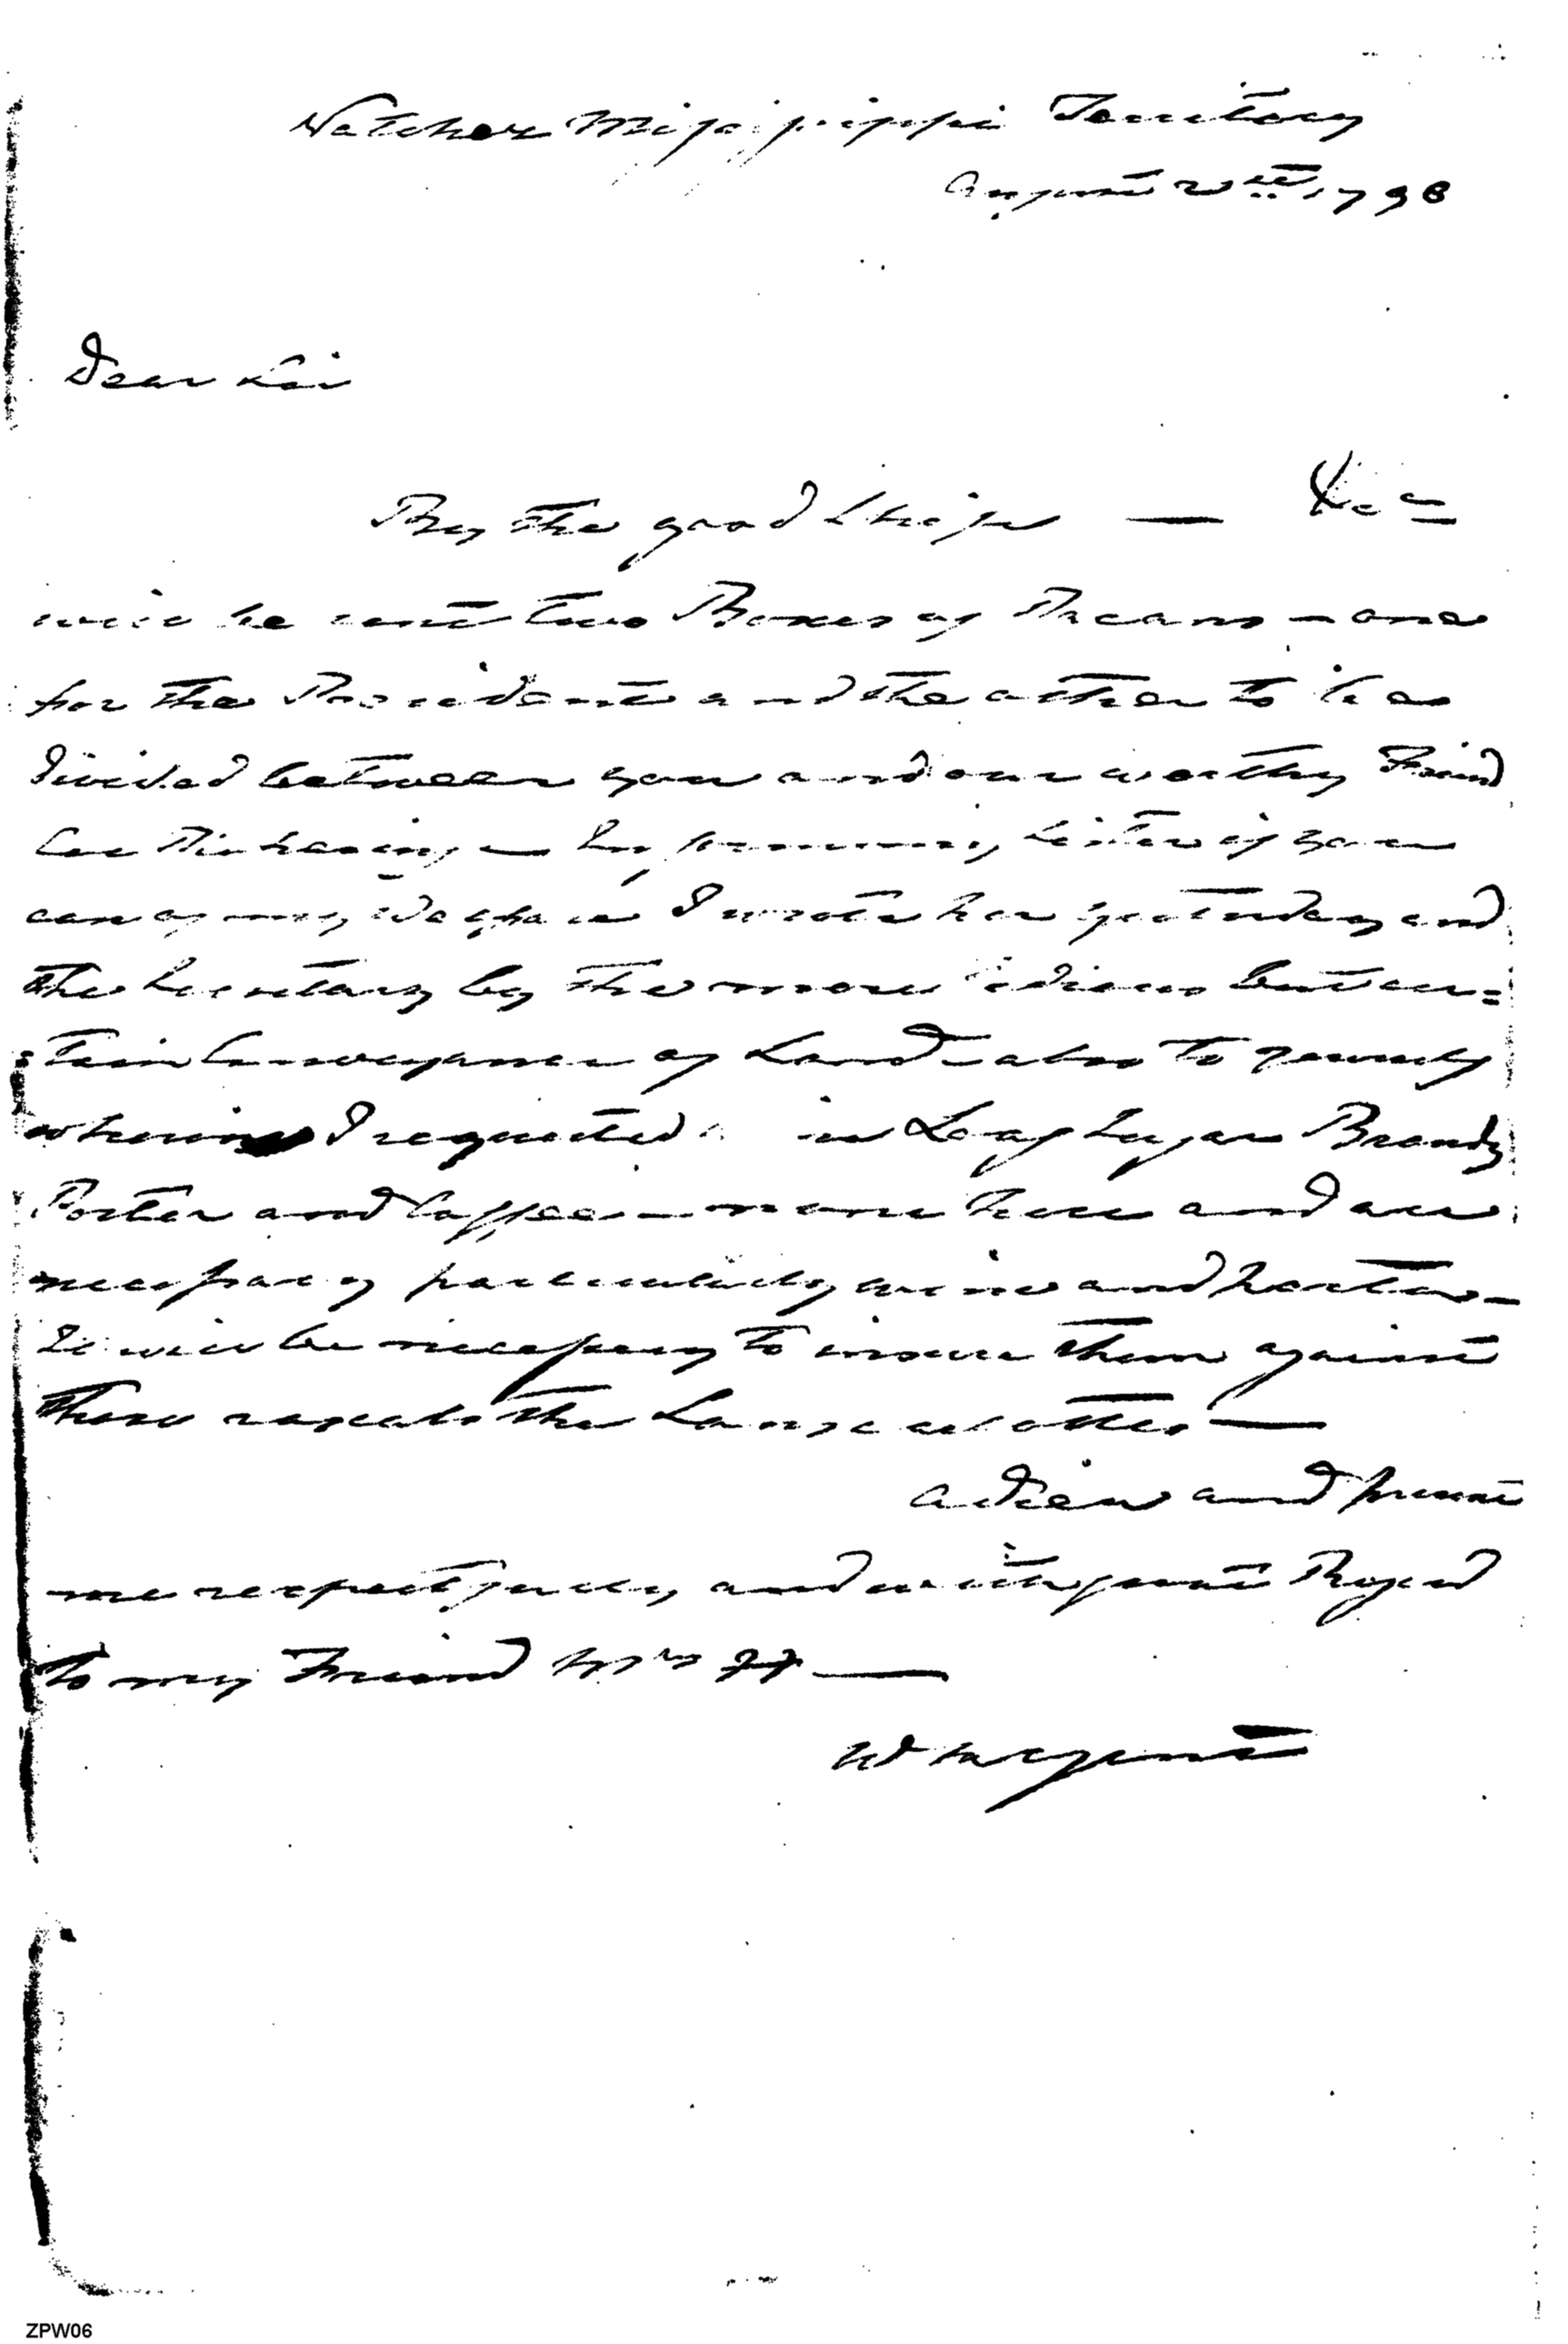 Natchez Missisippi Territory
August 20th 1798
Dear Sir
By the good Ship — &c
will be sent two Boxes of Pecans – one
for the President and the other to be
divided between you and our worthy Friend
Col Pickering – Inform my Sister if you
can of my Welfare I wrote her yesterday and
the Secretary by the more tedious but cer=
=tain Conveyance of Land – also to yourself
wherein I requested Loaf Sugar Brandy
Porter and Coffee – none here and are
necessary particularly wine and porter –
It will be necessary to insure them against
those rascals the Sansculottes —
Adieu and present
me respectfully and with great Regard
to my Friend Mrs —
W Sargent
ZPW06